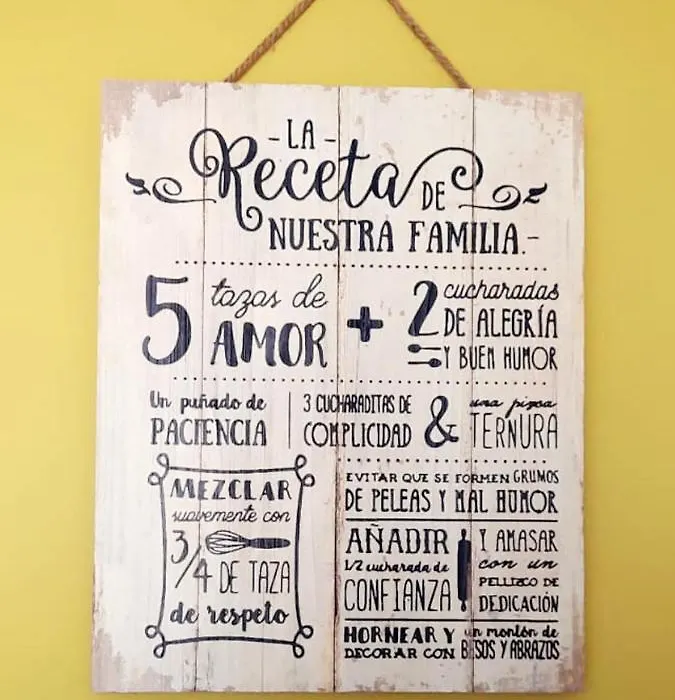 -LA-
Receta DE
NUESTRA FAMILIA.-
5 tazas de
AMOR
+
2 cucharadas
DE ALEGRÍA
Y BUEN HUMOR
Un puñado de
PACIENCIA
3 CUCHARADITAS DE
COMPLICIDAD
&
una pizca
TERNURA
MEZCLAR
suavemente con
3/4 DE TAZA
de respeto
EVITAR QUE SE FORMEN GRUMOS
DE PELEAS Y MAL HUMOR
AÑADIR
1/2 cucharada de
CONFIANZA
Y AMASAR
con un
PELLIZCO DE
DEDICACIÓN
HORNEAR Y un montón de
DECORAR CON BESOS Y ABRAZOS